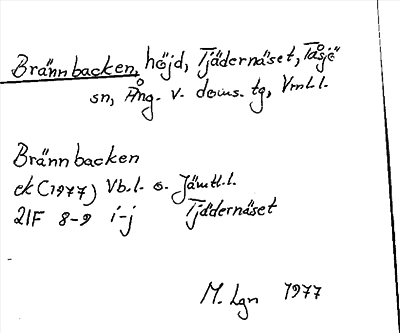 Brännbacken, höjd, Tjädernäset, Tåsjö
sn, Ång. v. doms. tg, Vnl.l.
Brännbacken
ek (1977) Vb.l. o. Jämtl.l.
21F 8-9 i-j Tjädernäset
M. Lgn 1977